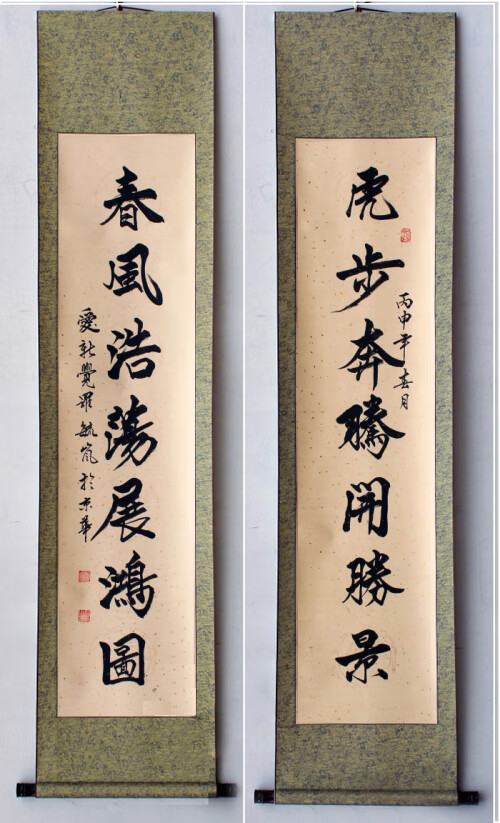 虎步奔騰開勝景
丙申年喜月
春風浩蕩展鴻圖
愛新覺羅毓嵐於京華